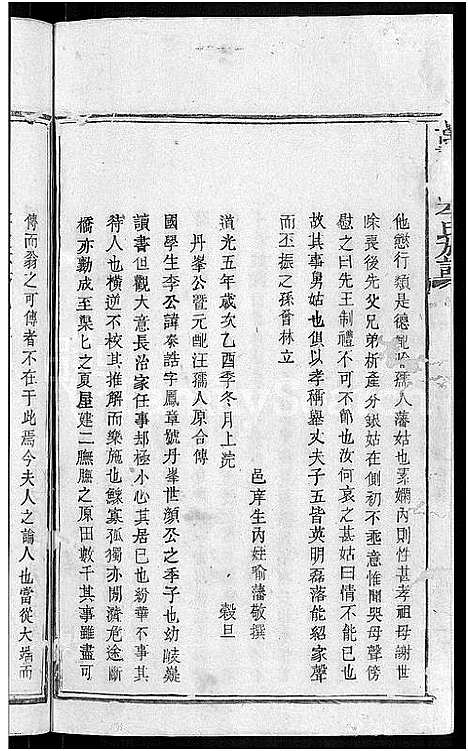 李氏族譜
他懿行類是德配喻孺人藩姑也素嫻內則性甚孝祖母謝世
除喪後先父兄弟析產分銀姑在側初不乖意惟聞哭母聲傍
慰之曰先王制禮不可不節也汝何哀之甚姑曰情不可已
故其事舅姑也俱以孝稱舉丈夫子五皆英明磊落能紹家聲
而丕振之孫會林立
邑庠生內姪喻藩敬撰
道光五年歲次乙酉季冬月上浣 穀旦
丹峯公暨元配汪孺人原合傳
國學生李公諱泰誥字鳳章號丹峯世顏公之季子也幼岐嶷
讀書但觀大意長治家任事却極小心其居已也紛華不事其
待人也橫逆不校其推解而樂施也鰥寡孤獨亦周濟危途斷
橋亦勷成至渠匕之夏屋建二膴膴之原田數千其事雖盡可
傳而翁之可傳者不在于此焉今夫人之論人也當從大端而